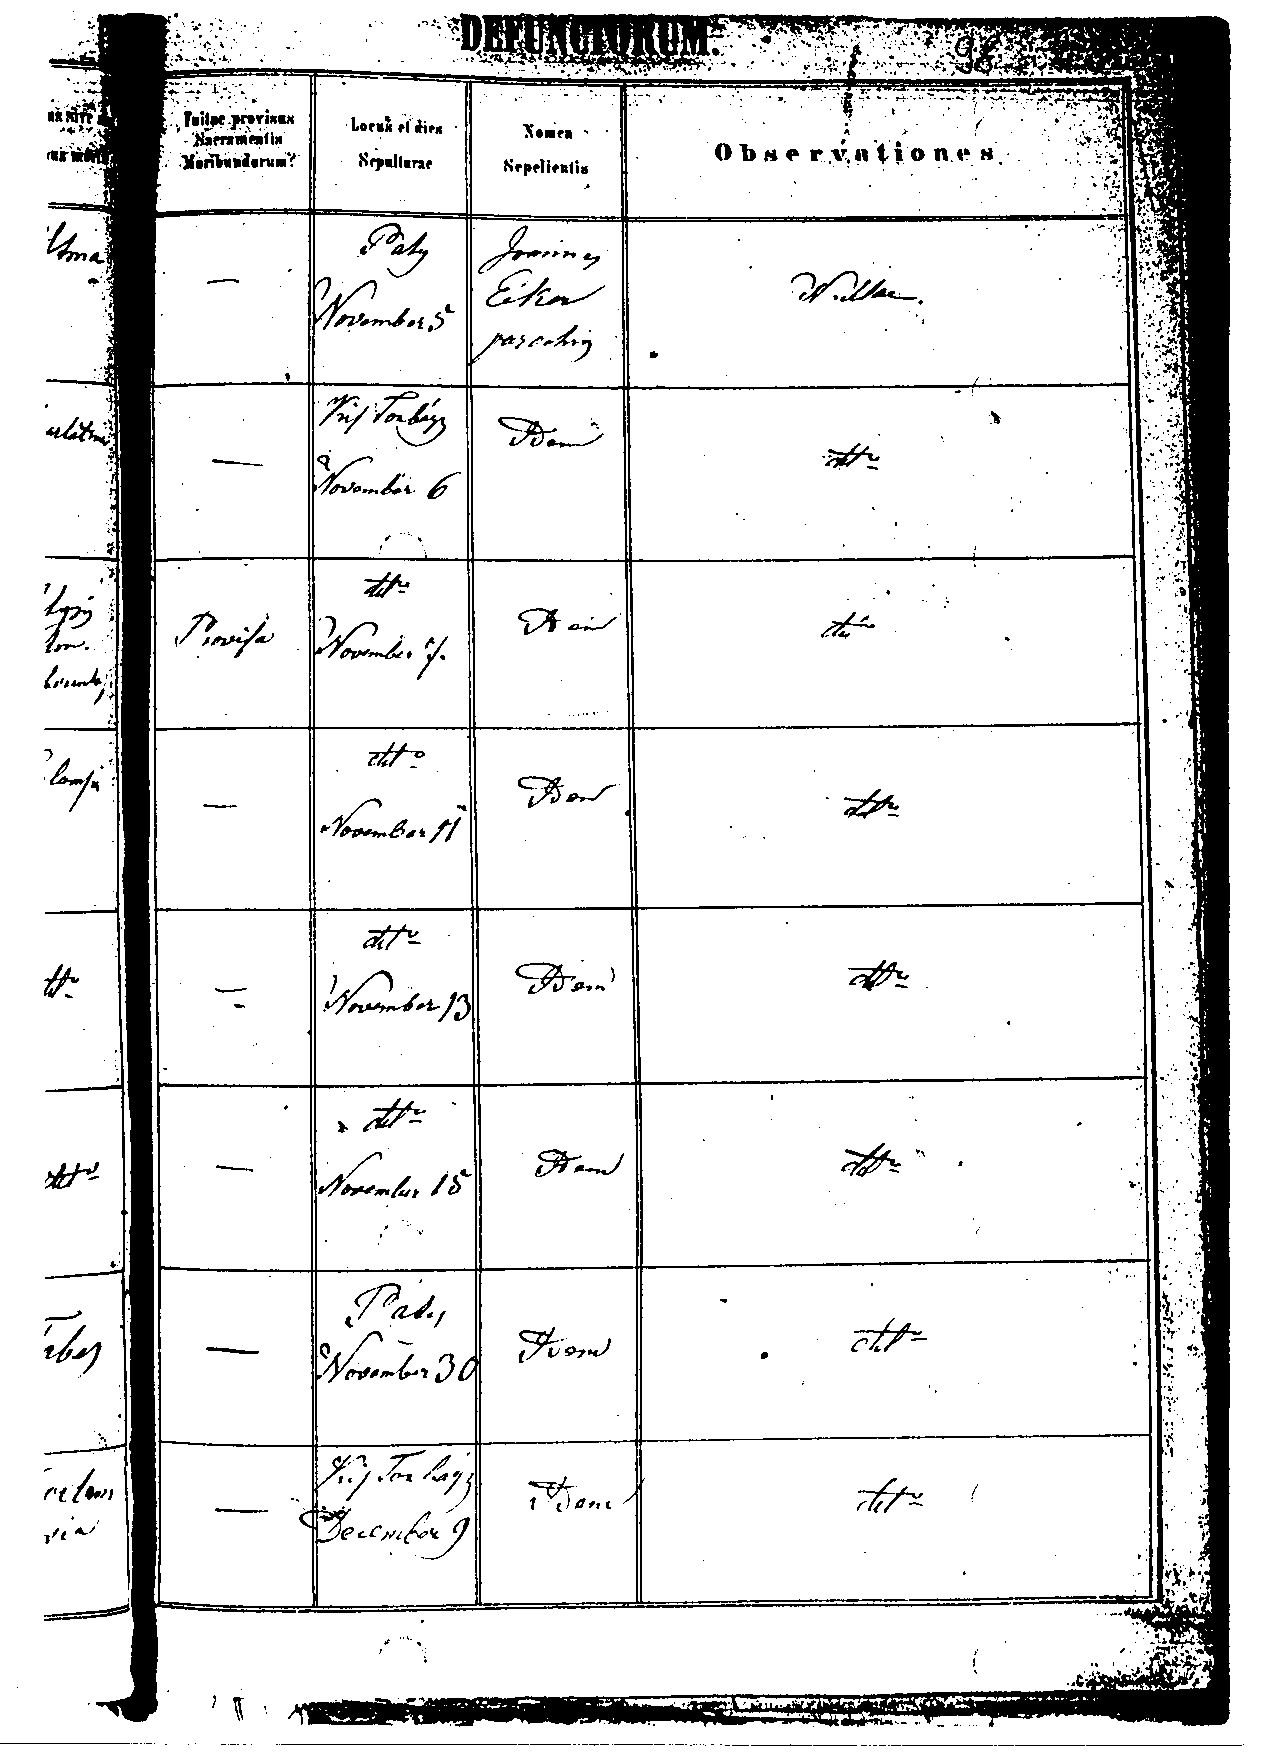 DEFUNCTORUM.
98
Fuitne provisus
Sacramentis
Moribundorum?
Locus et dies
Sepulturae
Nomen
Sepelientis
Observationes.
—
Páty
November 5
Joannes
Eiker
parochus
Nullae.
—
Kis Torbágy
November 6
Idem
dtto
Provisa
dtto
November 7.
Idem
dtto
—
dtto
November 11
Idem
dtto
—
dtto
November 13
Idem
dtto
—
dtto
November 15
Idem
dtto
—
Páty
November 30
Idem
dtto
—
Kis Torbágy
December 9
Idem
dtto